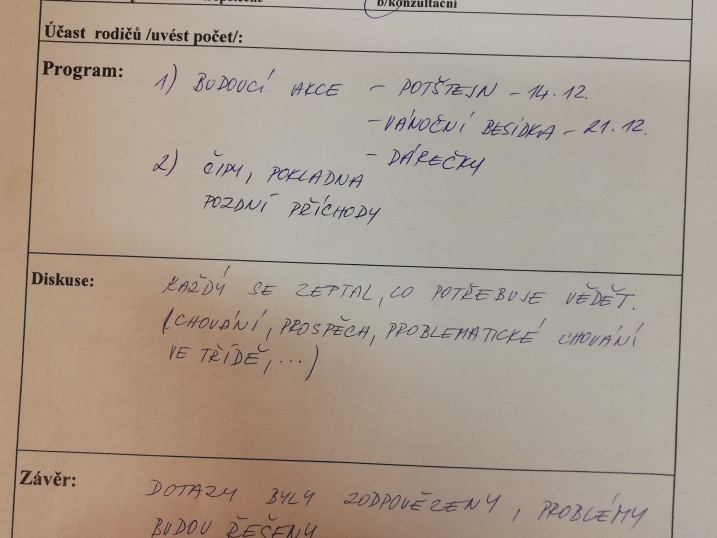 b/konzultační
Účast rodičů /uvést počet/:
Program: 1) BUDOUCÍ AKCE - POTŠTEJN - 14.12.
- VÁNOČNÍ BESÍDKA - 21.12.
- DÁREČKY
2) ČIPY, POKLADNA
POZDNÍ PŘÍCHODY
Diskuse: KAŽDÝ SE ZEPTAL, CO POTŘEBUJE VĚDĚT.
(CHOVÁNÍ, PROSPĚCH, PROBLEMATICKÉ CHOVÁNÍ
VE TŘÍDĚ, ...)
Závěr: DOTAZY BYLY ZODPOVĚZENY, PROBLÉMY
BUDOU ŘEŠENY